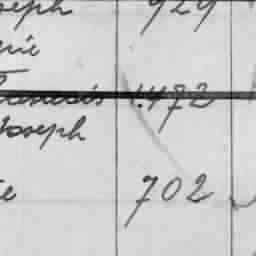 oseph 929
erie
Francois 1.472
Joseph
e 702